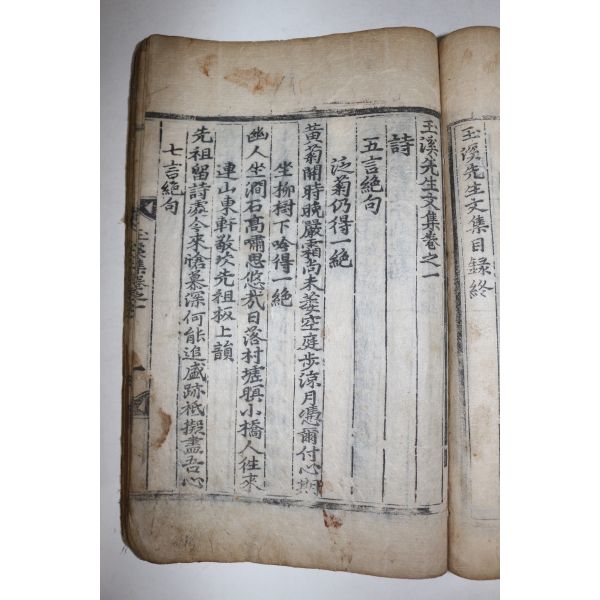 玉溪先生文集目録終
玉溪先生文集卷之一
詩
五言絶句
泛菊仍得一絶
黃菊開時晩嚴霜尚未萎空庭步涼月憑爾付心期
坐柳樹下吟得一絶
幽人坐澗石高嘯思悠哉日落村墟暝小橋人往來
連山東軒敬次先祖板上韻
先祖留詩處今來愴慕深何能追盛跡祗擬盡吾心
七言絶句
玉溪集卷之一
一